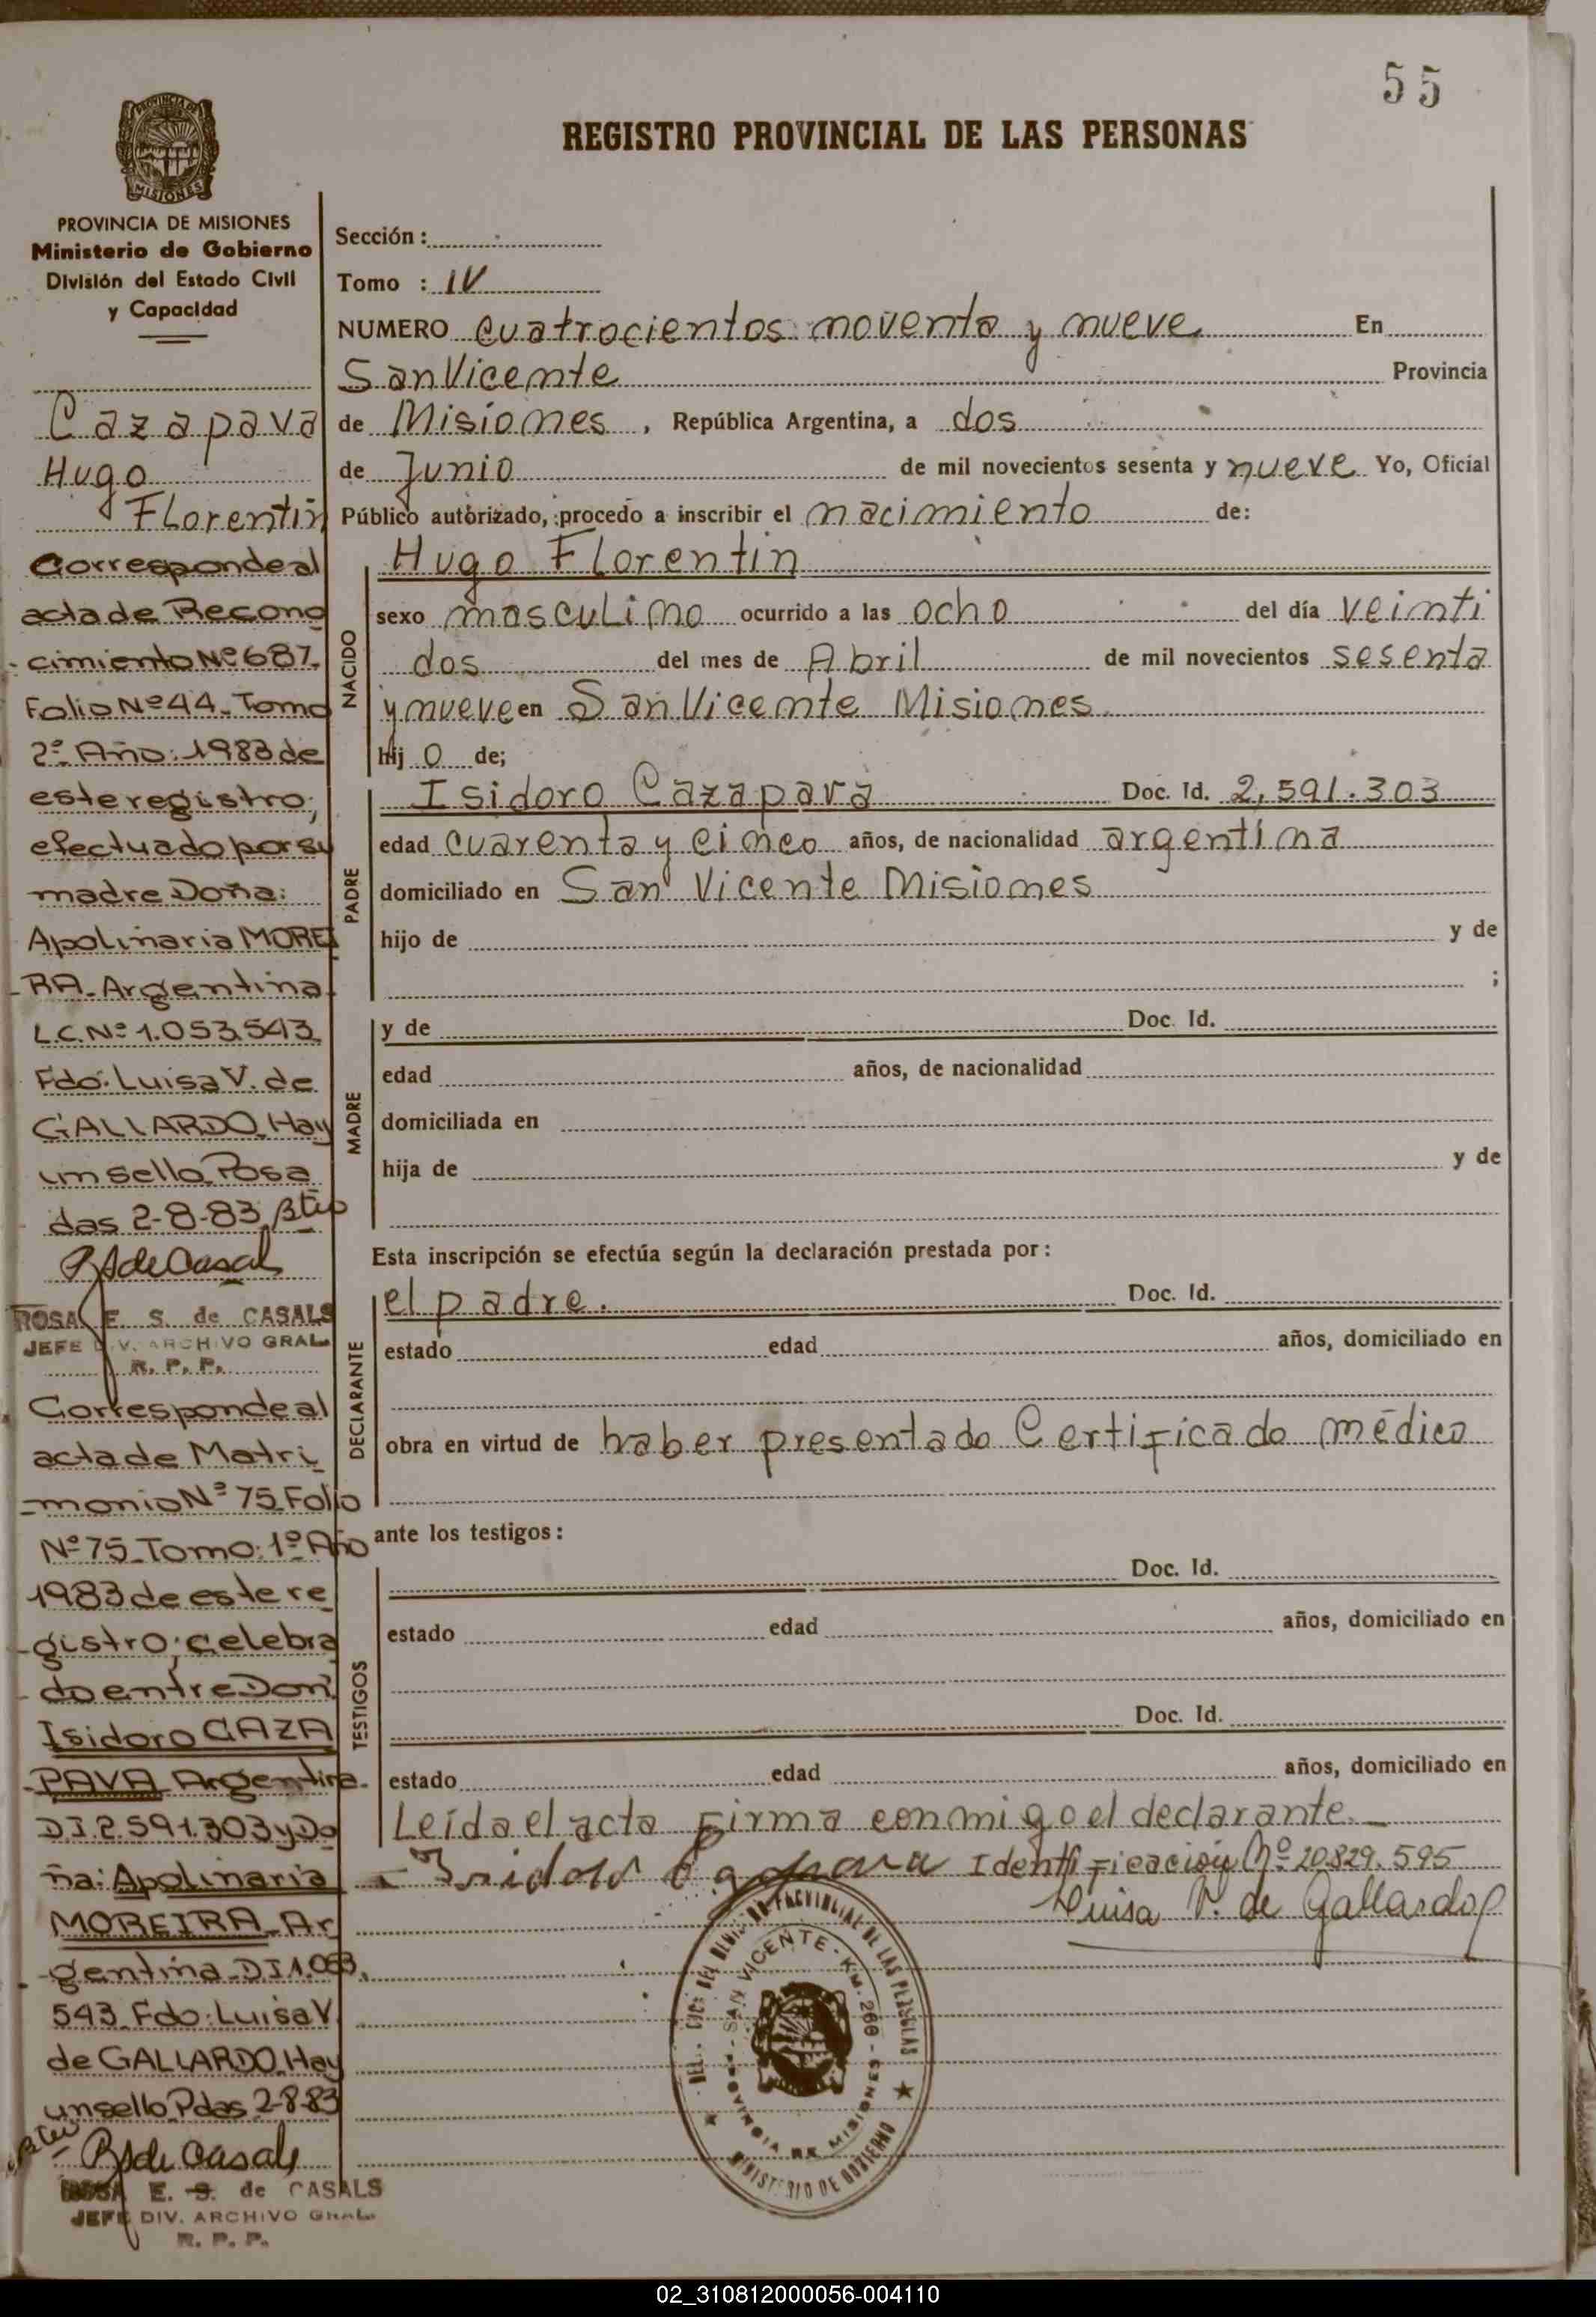 55
REGISTRO PROVINCIAL DE LAS PERSONAS
PROVINCIA DE MISIONES
MISIONES
PROVINCIA DE MISIONES
Ministerio de Gobierno
División del Estado Civil
y Capacidad
Cazapava
Hugo
Florentin
Corresponde al
acta de Recono
cimiento Nº 687.
Folio Nº 44. Tomo
2º. Año: 1983 de
este registro;
efectuado por su
madre Doña:
Apolinaria MOREI
-RA. Argentina.
L.C.Nº 1.053.543.
Fdo: Luisa V. de
GALLARDO. Hay
un sello. Posa
das 2-8-83.
RSde Casals
ROSA E. S. de CASALS
JEFE DIV. ARCHIVO GRAL.
R. P. P.
Corresponde al
acta de Matri
-monio Nº 75 Folio
Nº 75. Tomo: 1º Año
1983 de este re
-gistro; celebra
-do entre Don:
Isidoro CAZA
-PAVA Argentina.
D.I. 2.591.303 y Do
ña: Apolinaria
MOREIRA. Ar
-gentina. DI 1.053.
543. Fdo: Luisa V.
de GALLARDO. Hay
un sello. Pdas. 2-8-83
RSde Casals
ROSA E. S. de CASALS
JEFE DIV. ARCHIVO GRAL.
R. P. P.
Sección:
Tomo : IV
NUMERO cuatrocientos noventa y nueve En
San Vicente Provincia
de Misiones, República Argentina, a dos
de Junio de mil novecientos sesenta y nueve Yo, Oficial
Público autorizado, procedo a inscribir el nacimiento de:
NACIDO
Hugo Florentin
sexo masculino ocurrido a las ocho del día veinti
dos del mes de Abril de mil novecientos sesenta
y nueve en San Vicente Misiones.
hij o de;
PADRE
Isidoro Cazapava Doc. Id. 2,591.303
edad cuarenta y cinco años, de nacionalidad argentina
domiciliado en San Vicente Misiones
hijo de y de
;
MADRE
y de Doc. Id.
edad años, de nacionalidad
domiciliada en
hija de y de
Esta inscripción se efectúa según la declaración prestada por:
DECLARANTE
el padre. Doc. Id.
estado edad años, domiciliado en
obra en virtud de haber presentado Certificado médico
ante los testigos:
TESTIGOS
Doc. Id.
estado edad años, domiciliado en
Doc. Id.
estado edad años, domiciliado en
Leída el acta firma conmigo el declarante.
Isidoro Cazapava Identificación Nº 20.829.595
Luisa V. de Gallardo
PROVINCIAL DE LAS PERSONAS
SAN VICENTE - KM. 266 - MISIONES
PROVINCIA DE MISIONES
MINISTERIO DE GOBIERNO
02_310812000056-004110